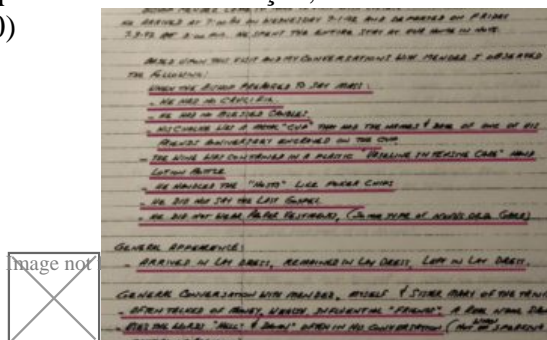 0)
HE ARRIVED AT 7:00 PM ON WEDNESDAY 7-1-92 AND DEPARTED ON FRIDAY
7-3-92 AT 2:00 P.M. HE SPENT THE ENTIRE STAY AT OUR HOME IN
BASED UPON THIS VISIT AND MY CONVERSATIONS WITH MENDEZ I OBSERVED
THE FOLLOWING:
WHEN THE BISHOP PREPARED TO SAY MASS:
- HE HAD NO CRUCIFIX.
- HE HAD NO BLESSED CANDLES.
- HIS CHALICE WAS A METAL "CUP" THAT HAD THE NAMES & DATE OF ONE OF HIS
FRIENDS ANNIVERSARY ENGRAVED ON THE CUP.
- THE WINE WAS CONTAINED IN A PLASTIC "VASELINE INTENSIVE CARE" HAND
LOTION BOTTLE
- HE HANDLED THE "HOSTS" LIKE POKER CHIPS
- HE DID NOT SAY THE LAST GOSPEL
- HE DID NOT WEAR PROPER VESTMENTS, (SOME TYPE OF NOVUS ORDO GARB)
GENERAL APPEARENCE:
- ARRIVED IN LAY DRESS, REMAINED IN LAY DRESS, LEFT IN LAY DRESS.
Image not
GENERAL CONVERSATION WITH MENDEZ, MYSELF & SISTER MARY OF THE
- OFTEN TALKED OF MONEY, WEALTH, INFLUENTIAL "FRIENDS". A REAL NAME
- USES THE WORDS "HELL" & "DAMN" OFTEN IN HIS CONVERSATION